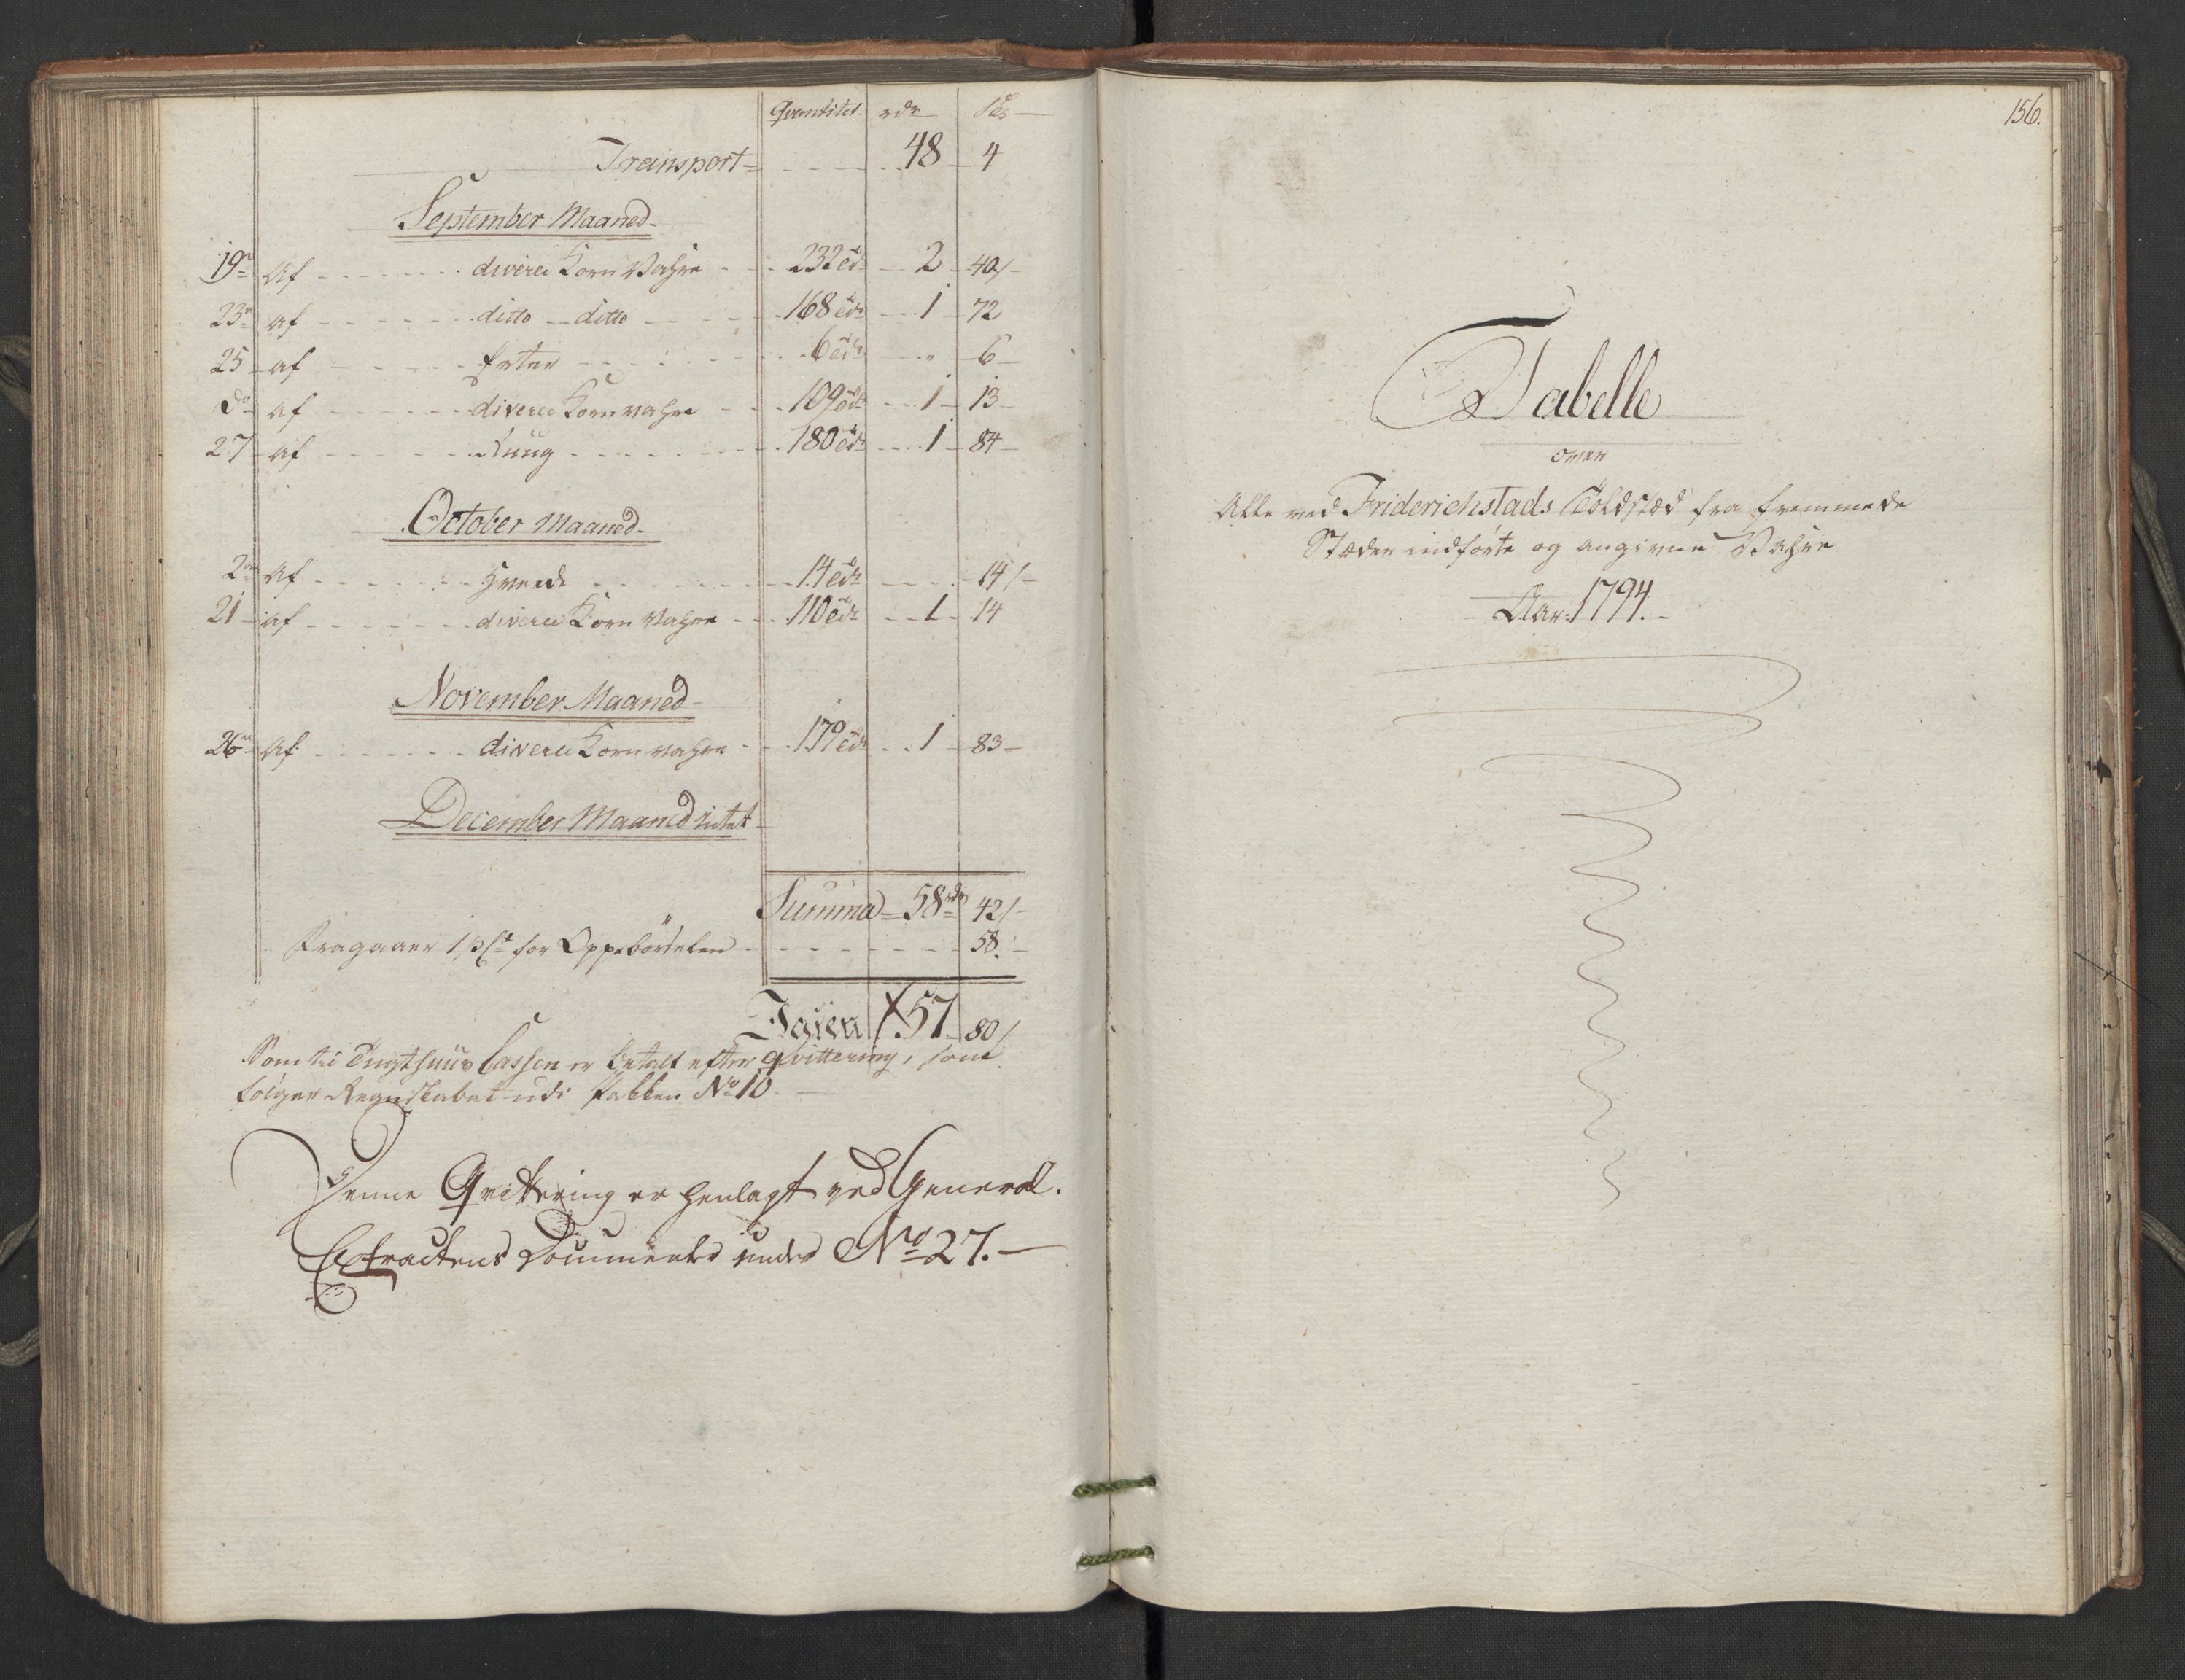 Qvantitet rdr ß
Transport = 48 4
September Maaned
19de Af diverse Korn Vahre 232 tdr 2 40/
23de af ditto ditto 168 tdr 1 72
25 af Erter 6 tdr " 6
do af diverse Korn vahre 109 tdr 1 13
27 af Ruug 180 tdr 1 84
October Maaned
2den Af Hvede 14 tdr 14/
21 af diverse Korn Vahre 110 tdr 1 14
November Maaned
26de Af diverse Korn vahre 179 tdr 1 83
December Maaned intet
Summa = 58 rdr 42/
Fragaaer 1 pCt for Oppebörselen 58.
Igien 57 80/
Som til Tugthuus Cassen er betalt efter qvittering, som
følger Regnskabet udi Pakken No 10.
Denne Qvittering er henlagt ved General.
Extractens Documenter under No 27.
156.
Tabelle
over
Alle ved Friderichstads Toldsted fra fremmede
Stæder indførte og angivne Vahre
Aar 1794.